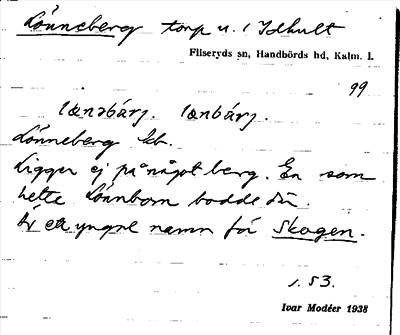 Lönneberg torp u. / Idhult
Fliseryds sn, Handbörds hd, Kalm. l.
99
lænəbárj. lænbárj.
Lönneberg kb.
Ligger ej på något berg. En som
hette Lönnbom bodde där.
Är ett yngre namn för Skogen.
s. 53.
Ivar Modéer 1938